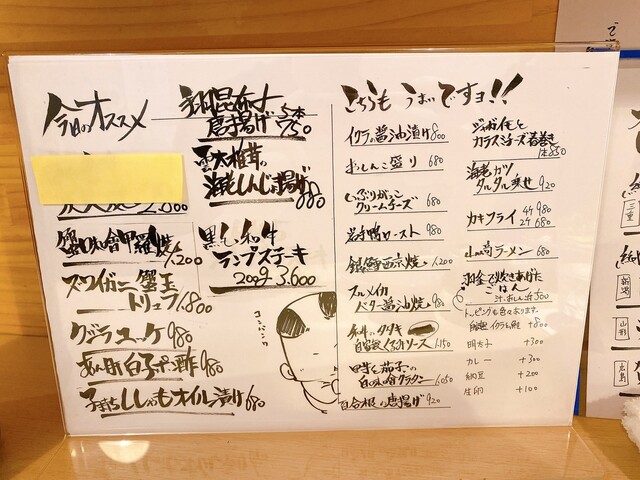 今日のオススメ
昆布〆
唐揚げ 5本 750
海老しんじょ揚げ 880
2.600
蟹味噌甲羅焼 1.200
黒毛和牛
ランプステーキ
200g 3.600
ズワイガニ蟹玉
トリュフ 1.800
グラユッケ 980
白子ポン酢 980
子持ちししゃもオイル漬け 680
こちらも うまいですョ!!
イクラの醤油漬け 800
おしんこ盛り 680
いぶりがっこ
クリームチーズ 680
岩手鴨ロースト 980
銀鱈西京焼 1.200
スルメイカ
バター醤油焼 980
自家製くるみソース 1.150
田芋と茄子の
白味噌グラタン 1.050
百合根の唐揚げ 920
ジャガイモと
カラスミチーズ春巻き
1本 850
海老カツ
タルタル乗せ 920
カキフライ 4ケ 980
2ケ 680
ラーメン 680
羽釜で炊きあげた
ごはん
汁・おしんこ付 500
トッピングも色々あります。
イクラ +800
明太子 +300
カレー +300
納豆 +200
生卵 +100